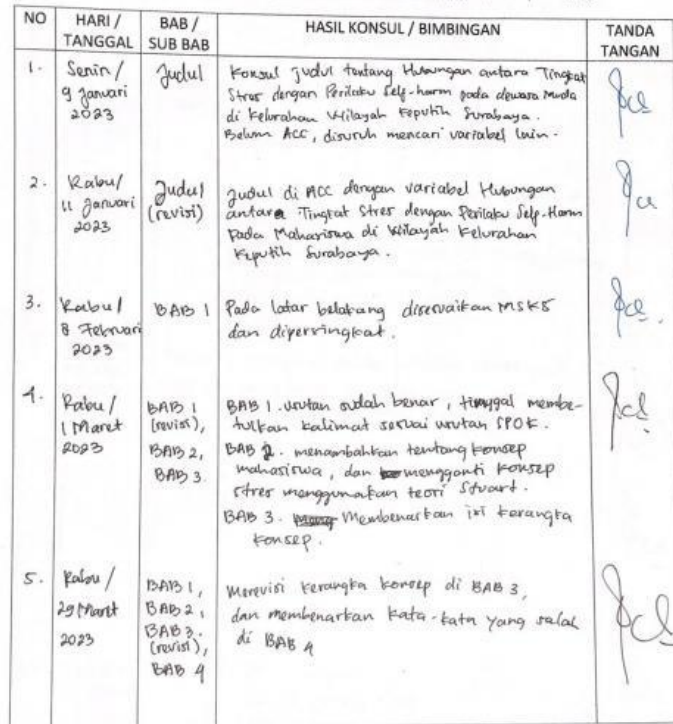 NO HARI / TANGGAL BAB / SUB BAB HASIL KONSUL / BIMBINGAN TANDA TANGAN
1. Senin / 9 Januari 2023
Judul
Konsul judul tentang Hubungan antara Tingkat
Stres dengan Perilaku Self-harm pada dewasa Muda
di Kelurahan Wilayah Keputih Surabaya.
Belum ACC, disuruh mencari variabel lain.
2. Rabu / 11 Januari 2023
Judul (revisi)
Judul di ACC dengan variabel Hubungan
antara Tingkat Stres dengan Perilaku Self-Harm
Pada Mahasiswa di Wilayah Kelurahan
Keputih Surabaya.
3. Rabu / 8 Februari 2023
BAB 1
Pada latar belakang disesuaikan MSKS
dan dipersingkat.
4. Rabu / 1 Maret 2023
BAB 1 (revisi), BAB 2, BAB 3.
BAB 1. urutan sudah benar, tinggal membe-
tulkan kalimat sesuai urutan SPOK.
BAB 2. menambahkan tentang konsep
mahasiswa, dan mengganti konsep
stres menggunakan teori Stuart.
BAB 3. Membenarkan isi kerangka
konsep.
5. Rabu / 29 Maret 2023
BAB 1, BAB 2, BAB 3. (revisi), BAB 4
Merevisi kerangka konsep di BAB 3,
dan membenarkan kata-kata yang salah
di BAB 4